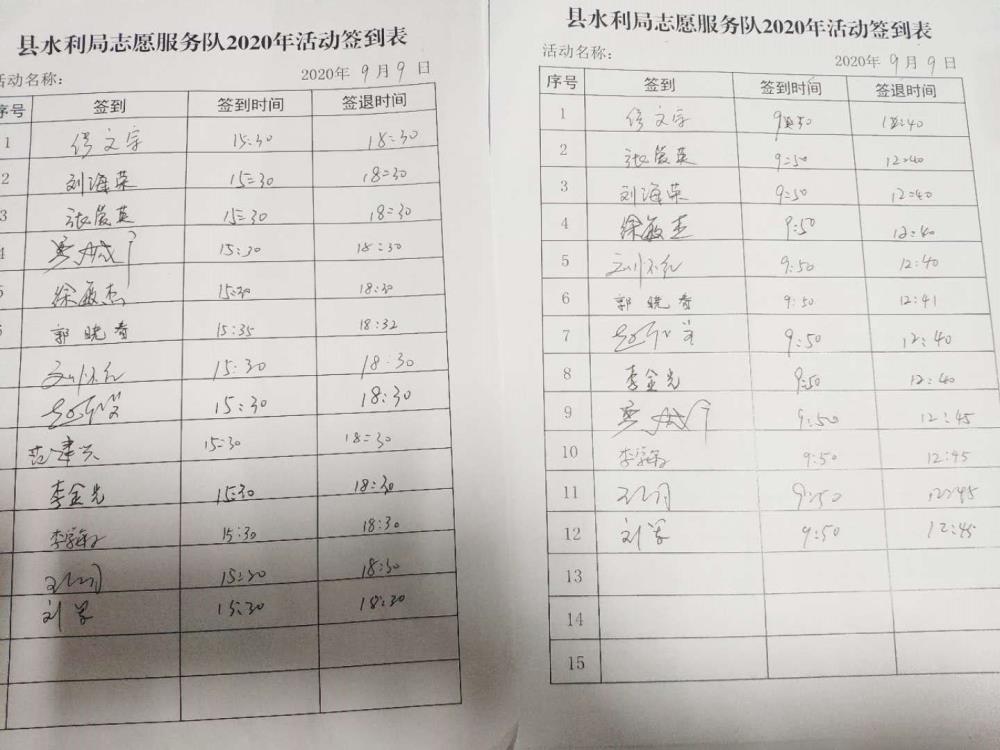 县水利局志愿服务队2020年活动签到表
活动名称：
2020年 9月 9日
序号 签到 签到时间 签退时间
1 文字 15:30 18:30
2 刘海荣 15:30 18:30
3 张俊英 15:30 18:30
15:30 18:30
徐敏杰 15:30 18:30
郭晓香 15:35 18:32
15:30 18:30
15:30 18:30
范津兴 15:30 18:30
李金光 15:30 18:30
李 15:30 18:30
15:30 18:30
刘军 15:30 18:30
县水利局志愿服务队2020年活动签到表
活动名称：
2020年 9月 9日
序号 签到 签到时间 签退时间
1 文字 9:50 12:40
2 张俊英 9:50 12:40
3 刘海荣 9:50 12:40
4 徐敏杰 9:50 12:40
5 9:50 12:40
6 郭晓香 9:50 12:41
7 9:50 12:40
8 李金光 9:50 12:40
9 9:50 12:45
10 李 9:50 12:45
11 9:50 12:45
12 刘军 9:50 12:45
13
14
15